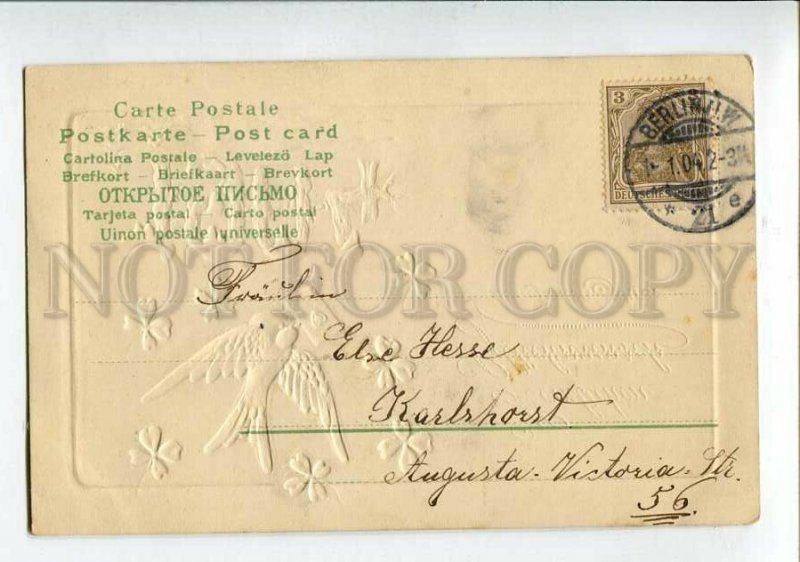 Carte Postale
Postkarte – Post card
Cartolina Postale – Levelezö Lap
Brefkort – Briefkaart – Brevkort
ОТКРЫТОЕ ПИСЬМО
Tarjeta postal – Carto postal
Uinon postale universelle
3
BERLIN
DEUTSCHES
NOT FOR COPY
Fräulein
Else Hesse
Karlshorst
Augusta-Victoria-Str.
56.